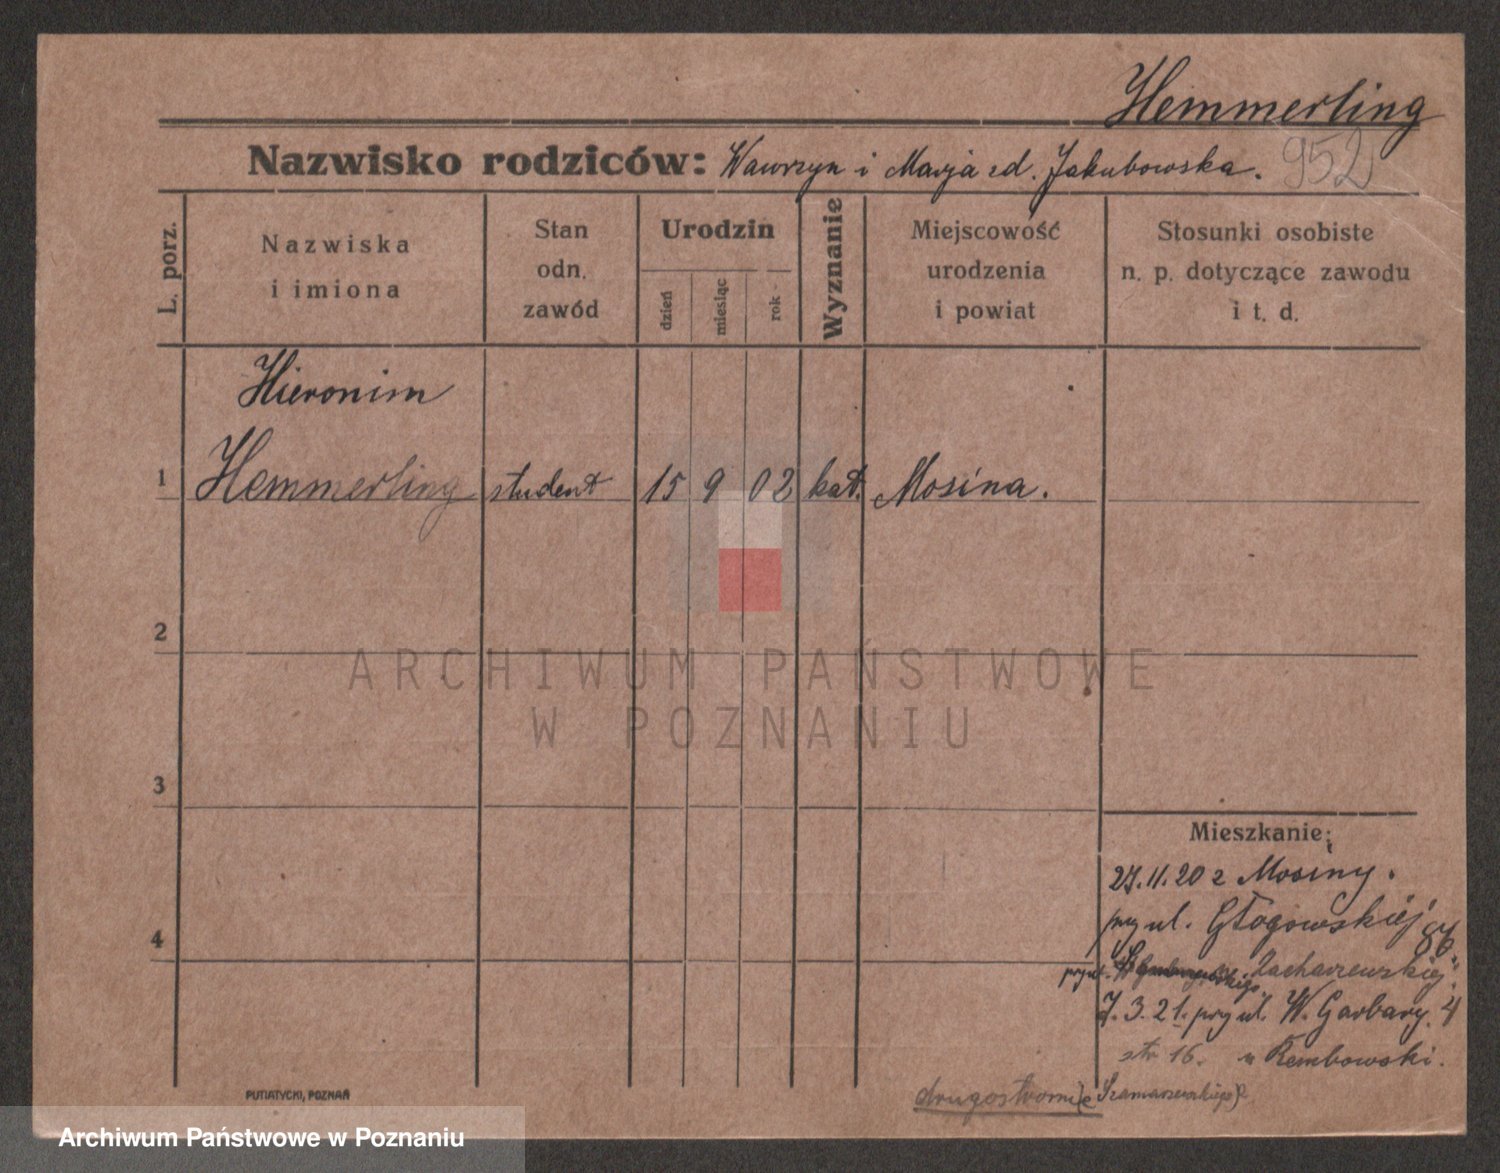 Hemmerling
Nazwisko rodziców: Wawrzyn i Marja zd. Jakubowska.
952
L. porz.
Nazwiska
i imiona
Stan
odn.
zawód
Urodzin
dzień
miesiąc
rok
Wyznanie
Miejscowość
urodzenia
i powiat
Stosunki osobiste
n. p. dotyczące zawodu
i t. d.
Hieronim
1 Hemmerling student 15 9 02 kat. Mosina.
2
ARCHIWUM PAŃSTWOWE
W POZNANIU
3
Mieszkanie:
27.11.20 z Mosiny.
przy ul. Głogowskiej 86
4
7.3.21. przy ul. W. Garbary 4
str 16. u Rembowski.
drugostronnie Szamarzewskiego
PUTIATYCKI, POZNAŃ
Archiwum Państwowe w Poznaniu